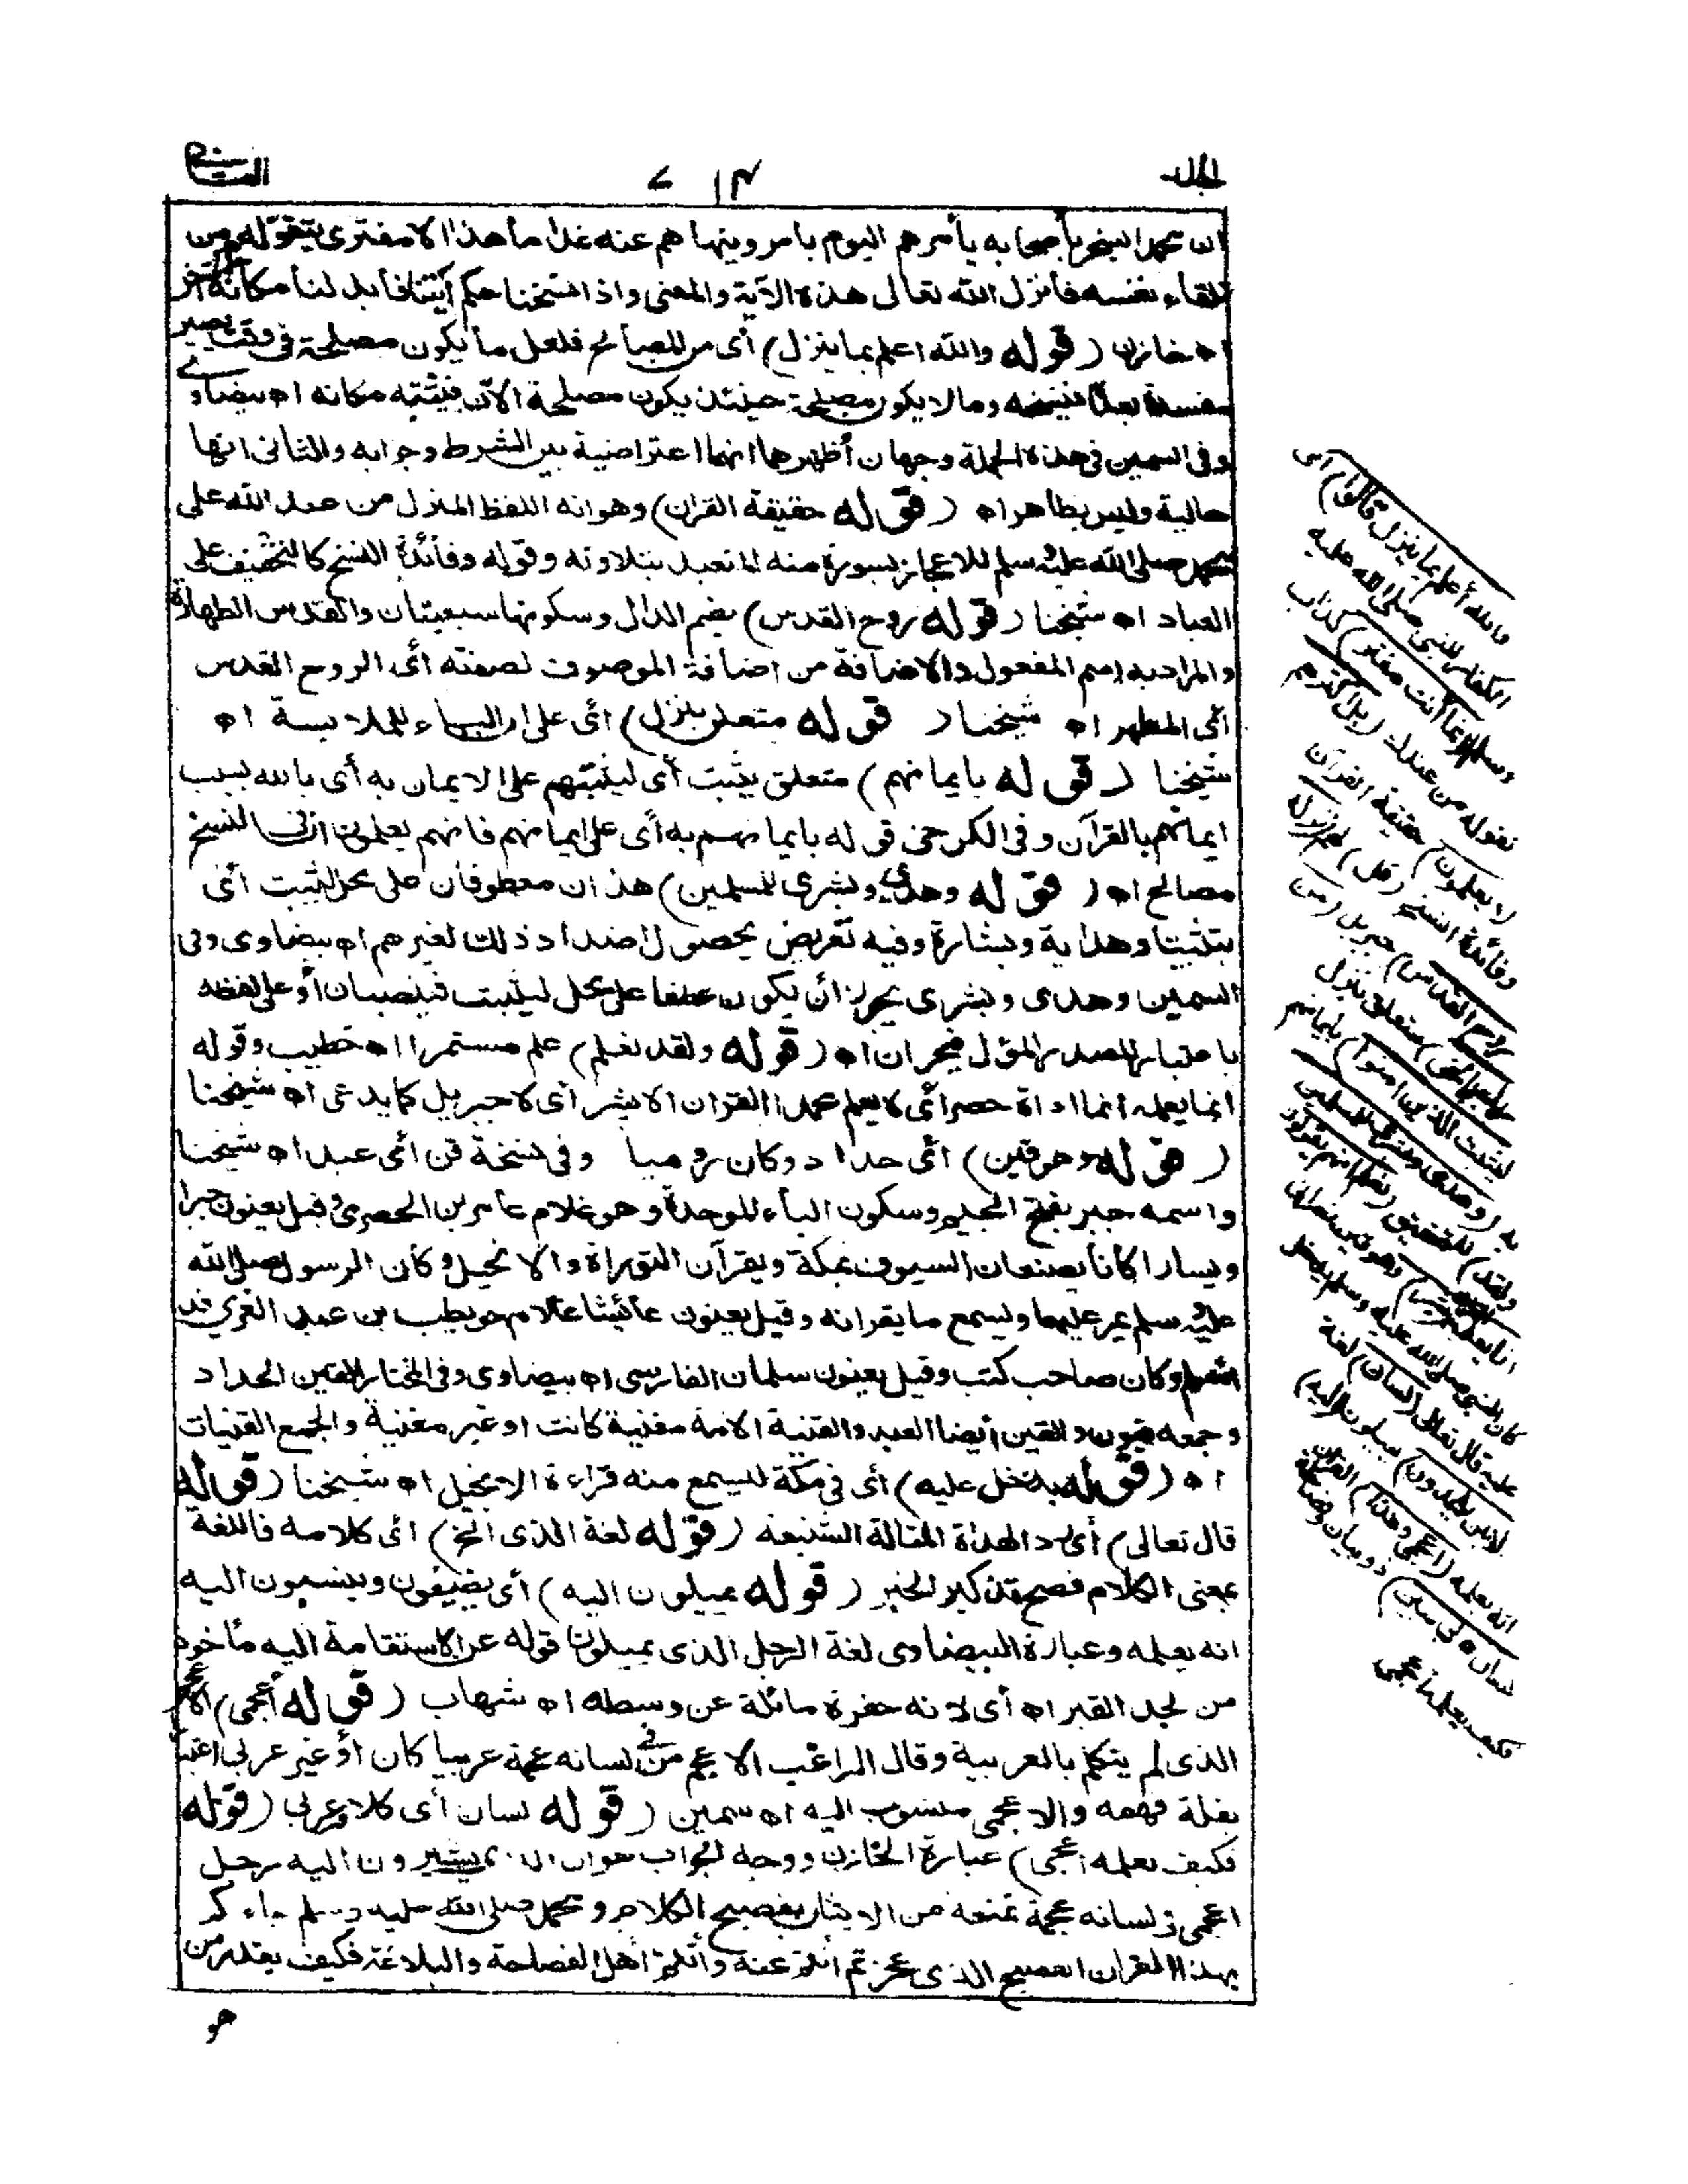 الجلد
١٤
٧
ان محمدا يسخر بأصحابه يأمرهم اليوم بامر وينهاهم عنه غدا ما هذا الا مفترى يتقوله من
تلقاء نفسه فأنزل الله تعالى هذه الآية والمعنى واذا نسخنا حكم آية فأبدلنا مكانه آخر
اه خازن (قوله والله اعلم بما ينزل) أى من المصالح فلعل ما يكون مصلحة فى وقت يصير
مفسدة بعده فينسخه وما لا يكون مصلحة حينئذ يكون مصلحة الآن فيثبته مكانه اه بيضاوى
وفى السمين فى هذه الجملة وجهان أظهرهما انها اعتراضية بين الشرط وجوابه والثانى انها
حالية وليس بظاهر اه (قوله حقيقة القرآن) وهو انه اللفظ المنزل من عند الله على
محمد صلى الله عليه وسلم للاعجاز بسورة منه المتعبد بتلاوته وقوله وفائدة النسخ كالتخفيف على
العباد اه شيخنا (قوله روح القدس) بضم الدال وسكونها سبعيتان والقدس الطهارة
والمراد به اسم المفعول والاضافة من اضافة الموصوف لصفته أى الروح القدس
أى المطهر اه شيخنا (قوله متعلق بنزل) أى على ان الباء للملابسة اه
شيخنا (قوله بايمانهم) متعلق يثبت أى ليثبتهم على الايمان به أى بالله بسبب
ايمانهم بالقرآن وفى الكرخى قوله بايمانهم به أى على ايمانهم فانهم يعلمون ان فى النسخ
مصالح اه (قوله وهدى وبشرى للمسلمين) هذان معطوفان على محل ليثبت أى
تثبيتا وهداية وبشارة وفيه تعريض بحصول اضداد ذلك لغيرهم اه بيضاوى وفى
السمين وهدى وبشرى يجوز أن يكون عطفا على محل ليثبت فينصبان أو على لفظه
باعتبار المصدر المؤل فيجران اه (قوله ولقد نعلم) علم مستمرا اه خطيب وقوله
انما يعلمه انما اداة حصر أى لا يعلم محمدا القرآن الا بشر أى لا جبريل كما يدعى اه شيخنا
(قوله وهو قين) أى حداد وكان روميا وفى نسخة قن أى عبد اه شيخنا
واسمه جبر بفتح الجيم وسكون الباء الموحدة وهو غلام عامر بن الحضرمى وقيل يعنون جبرا
ويسارا كانا يصنعان السيوف بمكة ويقرآن التوراة والانجيل وكان الرسول صلى الله
عليه وسلم يمر عليهما ويسمع ما يقرانه وقيل يعنون عائشا غلام حويطب بن عبد العزى قد
اسلم وكان صاحب كتب وقيل يعنون سلمان الفارسى اه بيضاوى وفى المختار القين الحداد
وجمعه قيون والقين أيضا العبد والقينة الامة مغنية كانت او غير مغنية والجمع القينات
اه (قوله يدخل عليه) أى فى مكة ليسمع منه قراءة الانجيل اه شيخنا (قوله
قال تعالى) أى رد الهذه المقالة الشنيعة (قوله لغة الذى الخ) أى كلامه فاللغة
بمعنى الكلام فصح تذكير الخبر (قوله يميلون اليه) أى يضيفون وينسبون اليه
انه يعلمه وعبارة البيضاوى لغة الرجل الذى يميلون قوله عن الاستقامة اليه مأخوذ
من لحد القبر اه أى لانه حفرة مائلة عن وسطه اه شهاب (قوله أعجمى) الاعجمى
الذى لم يتكلم بالعربية وقال الراغب الاعجم من فى لسانه عجمة عربيا كان أو غير عربى اعتبارا
بقلة فهمه والاعجمى منسوب اليه اه سمين (قوله لسان أى كلام عربى (قوله
فكيف يعلمه أعجمى) عبارة الخازن ووجه الجواب هو ان الذى يشيرون اليه رجل
اعجمى فى لسانه عجمة تمنعه من الاتيان بفصيح الكلام ومحمد صلى الله عليه وسلم جاءكم
بهذا القرآن الفصيح الذى عجزتم أنتم عنه وأنتم أهل الفصاحة والبلاغة فكيف يقدر من
هو
والله أعلم بما ينزل قالوا) أى
الكفار للنبى صلى الله عليه
وسلم (انما أنت مفتر) كذاب
تقوله من عندك (بل أكثرهم
لا يعلمون) حقيقة القرآن
وفائدة النسخ (قل) لهم (نزله
روح القدس) جبريل (من
ربك بالحق) متعلق بنزل
ليثبت الذين آمنوا) بايمانهم
به (وهدى وبشرى للمسلمين
ولقد) للتحقيق (نعلم أنهم يقولون
انما يعلمه بشر) وهو قين نصرانى
كان النبى صلى الله عليه وسلم يدخل
عليه قال تعالى (لسان) لغة
الذى يلحدون) يميلون (اليه)
انه يعلمه (أعجمى وهذا) القرآن
لسان عربى مبين) ذو بيان وفصاحة
فكيف يعلمه أعجمى